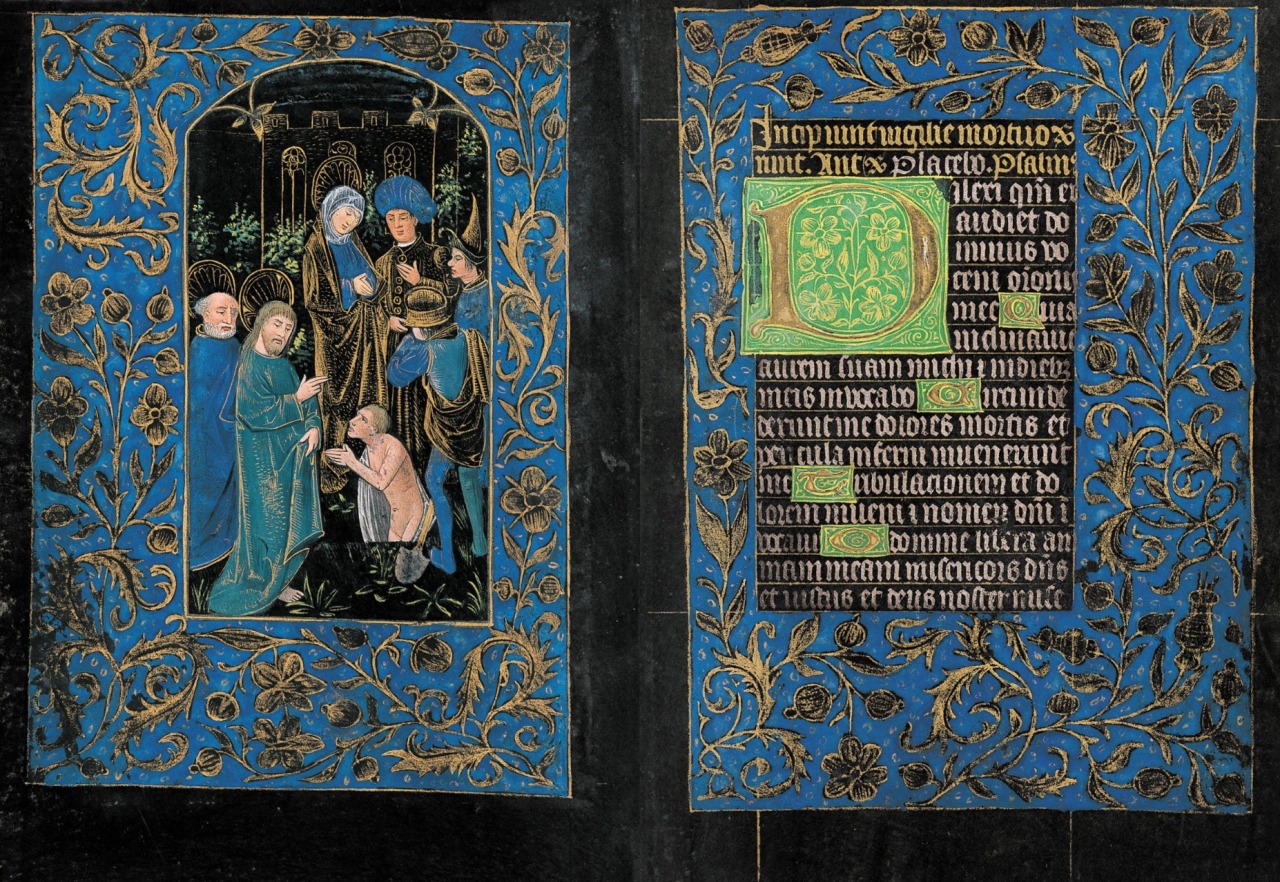 Incipiunt vigilie mortuox
runt. Ant x Placebo. Psalm9
Dilexi qm̄ ex
audiet do
minus vo
cem or̄onis
mee Quia
inclinavit
aurem suam michi ⁊ in dieb9
meis invocabo Circumde
derunt me dolores mortis et
pericula inferni invenerunt
me Tribulacionem et do
lorem inveni ⁊ nomen dn̄i i
vocavi O domine libera an
mam meam misericors dn̄s
et iustus et deus noster mise